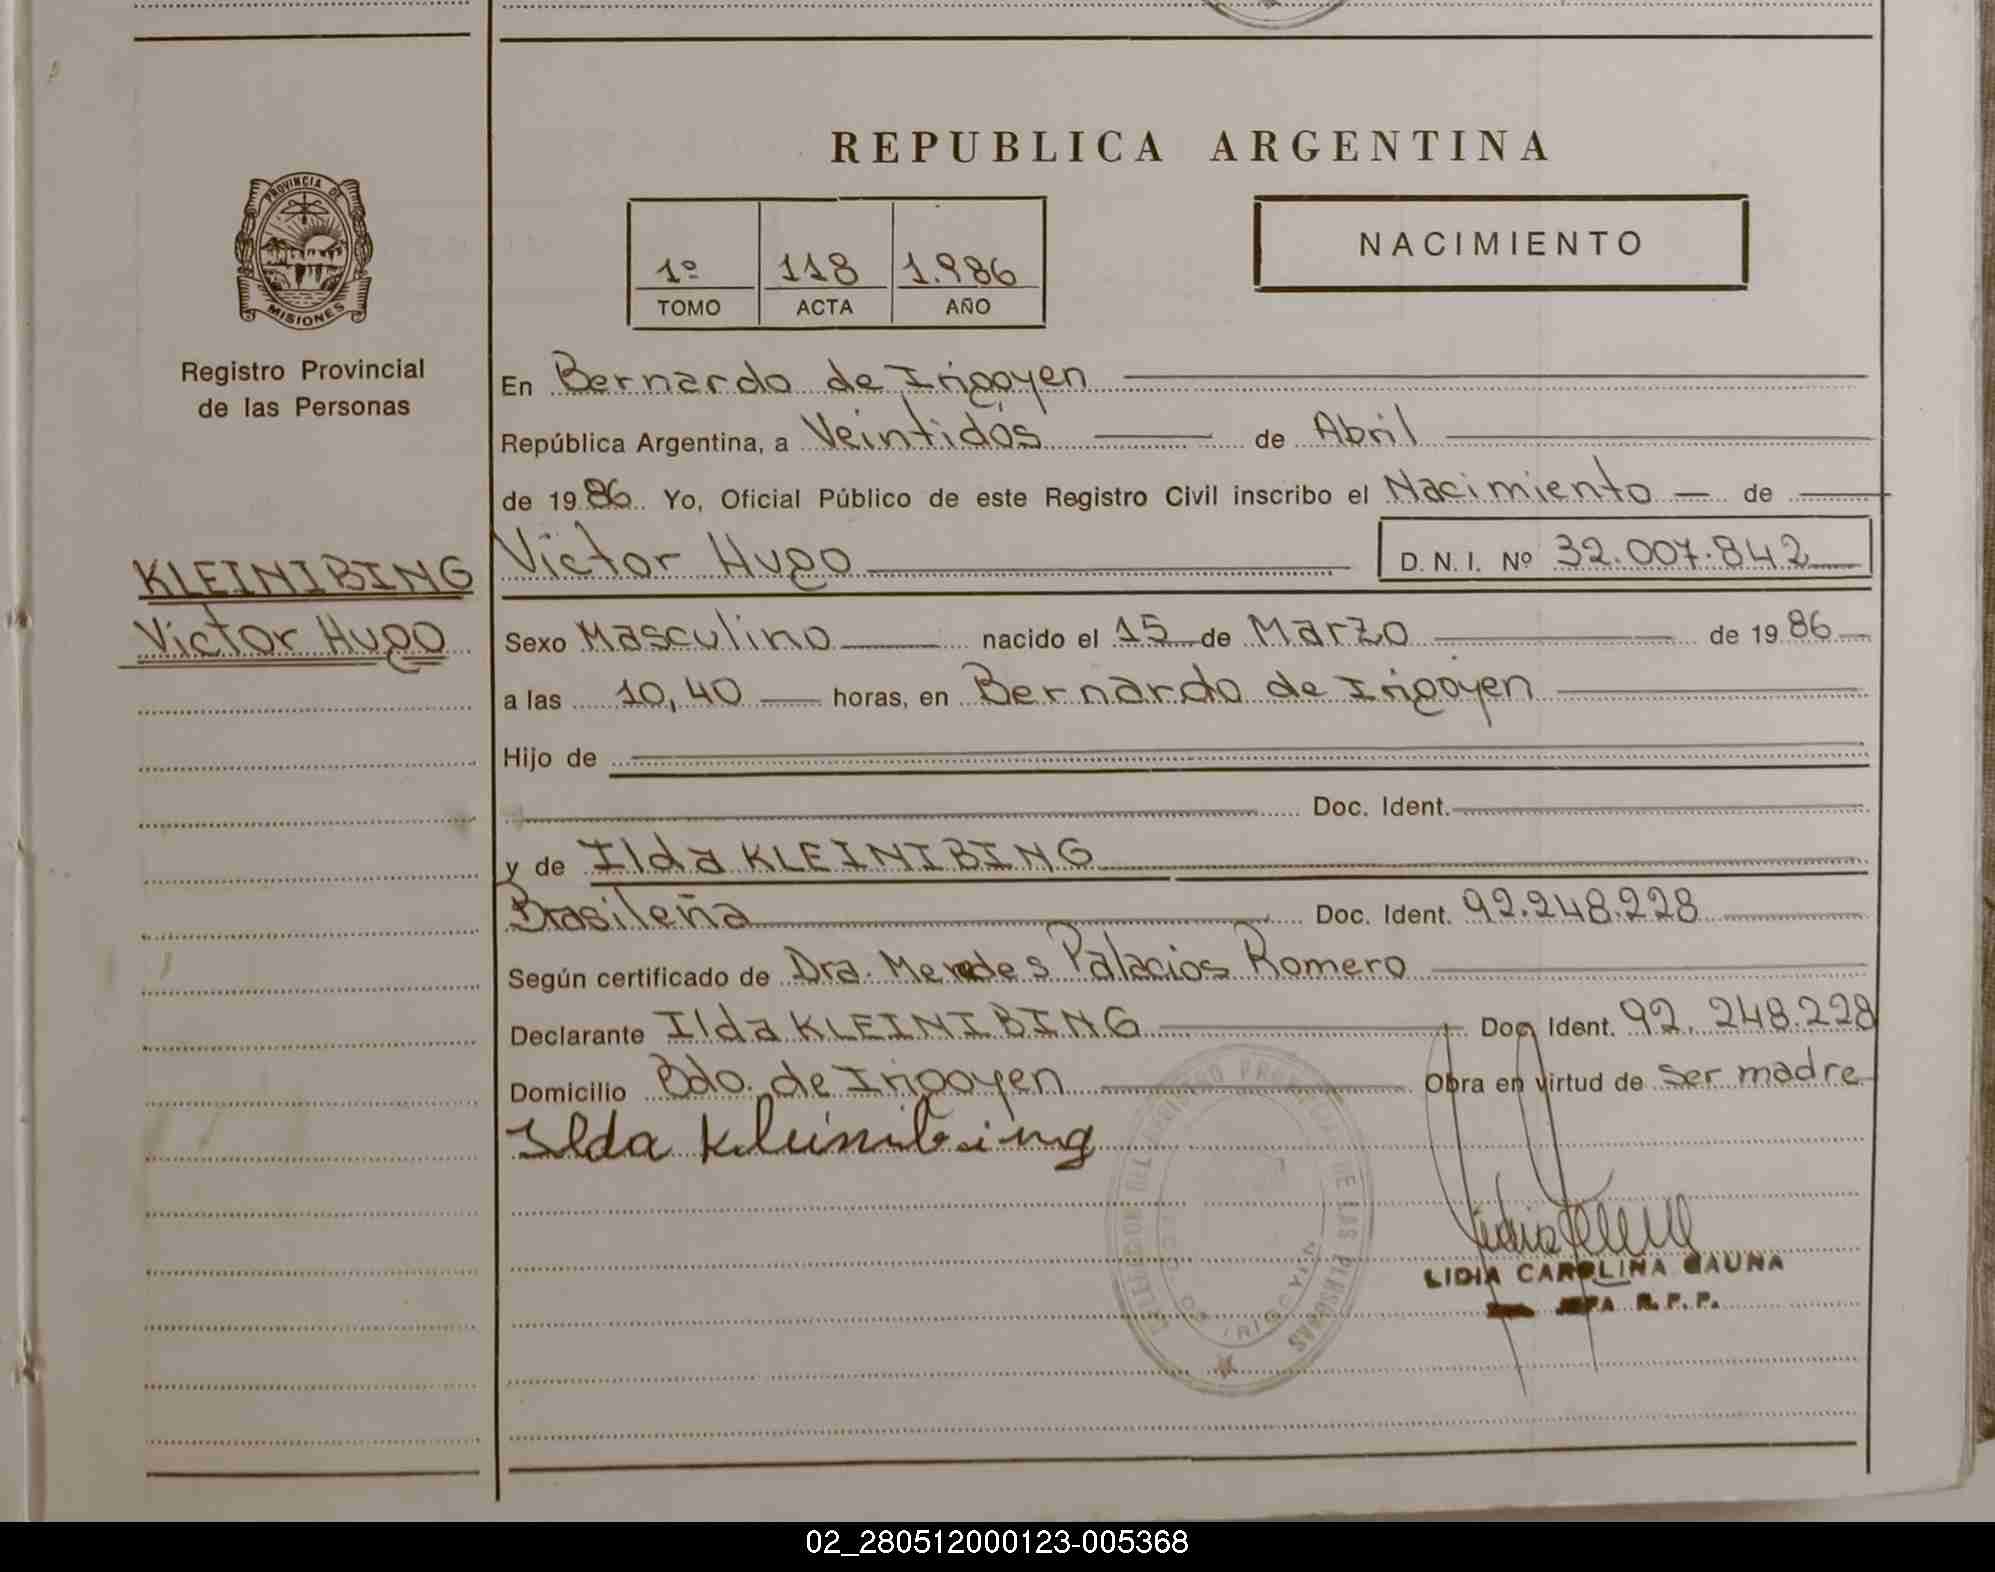 REPUBLICA ARGENTINA
PROVINCIA DE
MISIONES
Registro Provincial
de las Personas
1º 118 1.986
TOMO ACTA AÑO
NACIMIENTO
En Bernardo de Irigoyen
República Argentina, a Veintidós de Abril
de 1986. Yo, Oficial Público de este Registro Civil inscribo el Nacimiento de
KLEINIBING
Victor Hugo
Victor Hugo D. N. I. Nº 32.007.842
Sexo Masculino nacido el 15 de Marzo de 1986
a las 10,40 horas, en Bernardo de Irigoyen
Hijo de
Doc. Ident.
y de Ilda KLEINIBING
Brasileña Doc. Ident. 92.248.228
Según certificado de Dra. Palacios Romero
Declarante Ilda KLEINIBING Doc. Ident. 92.248.228
Domicilio Bdo. de Irigoyen Obra en virtud de ser madre
Ilda Kleinibing
LIDIA CAROLINA GAUNA
JEFA R.P.P.
02_280512000123-005368